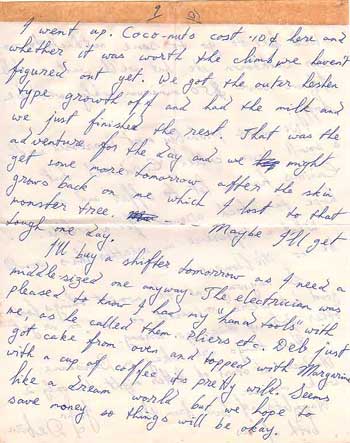 9
I went up. Coco-nuts cost .10¢ here and
whether it was worth the climb, we haven't
figured out yet. We got the outer
type growth off and had the milk and
we just finished the rest. That was the
adventure for the day and we might
get some more tomorrow after the skin
grows back on me which I lost to that
monster tree. Maybe I'll get
tough one day.
I'll buy a shifter tomorrow as I need a
middle-sized one anyway. The electrician was
pleased to know I had my "hand tools" with
me, as he called them. Pliers etc. Deb just
got cake from oven and topped with Margarine
with a cup of coffee it's pretty wild. Seems
like a dream world but we hope to
save money so things will be okay.